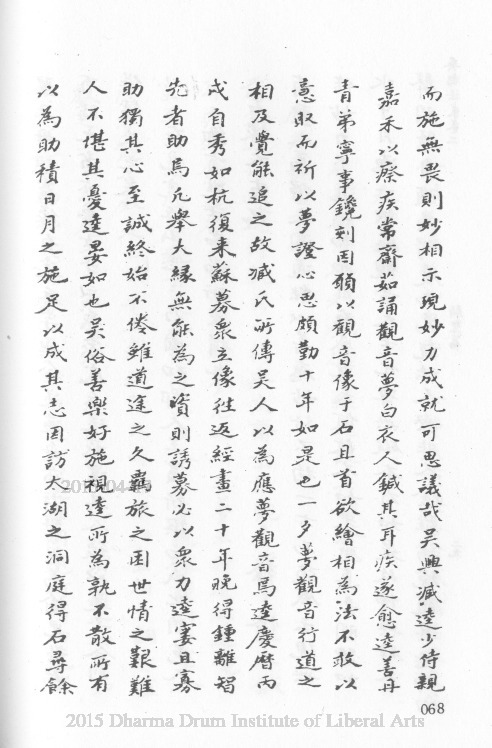 而施無畏則妙相示現妙力成就可思議哉吳興臧逵少侍親
嘉禾以瘵疾常齋茹誦觀音夢白衣人鍼其耳疾遂愈逵善丹
青弟寧事鑱刻因願以觀音像于石且首欲繪相為法不敢以
意取而祈以夢證心思頗勤十年如是也一夕夢觀音行道之
相及覺能追之故臧氏所傳吳人以為應夢觀音焉逵慶曆丙
戌自秀如杭復來蘇募衆立像往返經畫二十年晚得鍾離智
先者助焉凡舉大緣無能為之資則誘募必以衆力逵寠且寡
助獨其心至誠終始不倦雖道途之久羈旅之困世情之艱難
人不堪其憂逵晏如也吳俗善樂好施視逵所為孰不散所有
以為助積日月之施足以成其志因訪太湖之洞庭得石尋餘
068
2015 Dharma Drum Institute of Liberal Arts